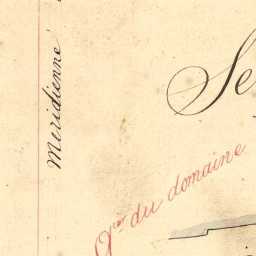 Méridienne
Se
Qer du domaine